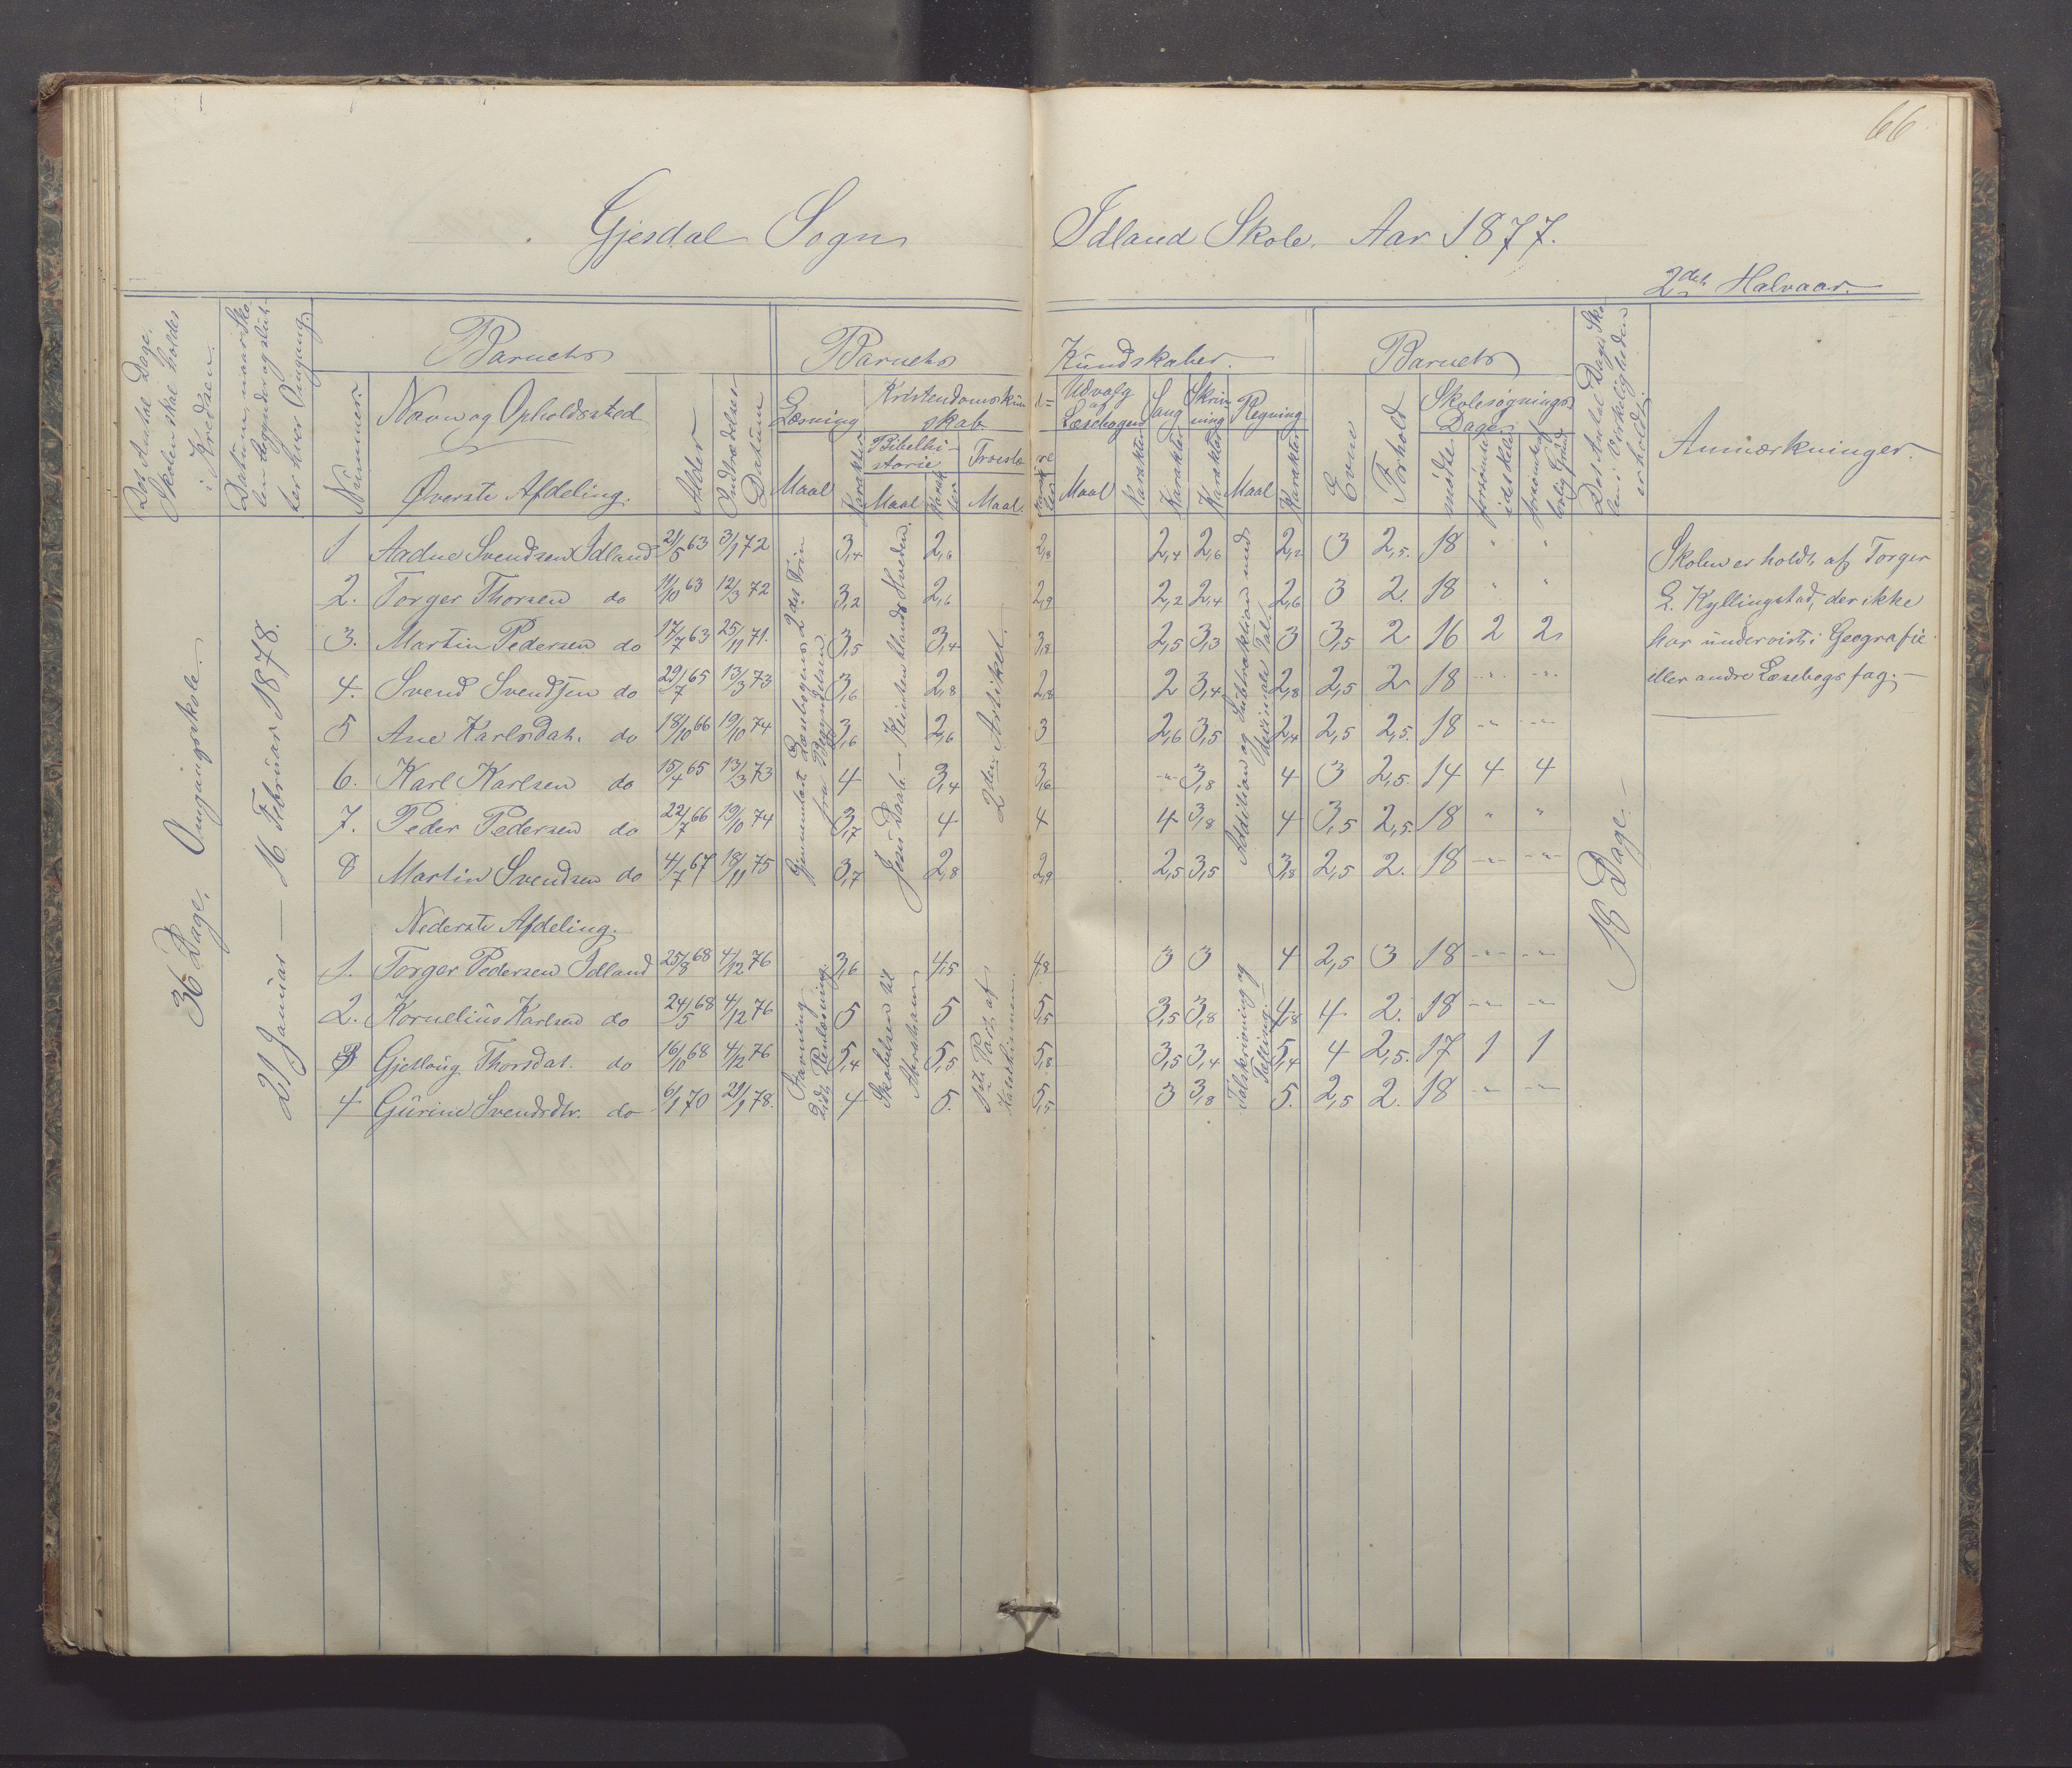 66
Gjesdal Sogn
Idland Skole. Aar 1877.
2det Halvaar.
Det Antal Dage,
Skolen skal holdes
i Kredsen.
Datum, naar Sko
len begynder og slut
ter hver Omgang.
Nummer.
Barnets
Navn og Opholdssted
Øverste Afdeling.
Alder
Indtrædelses
Datum
Barnets
Kundskaber.
Læsning
Maal
Karakter
Kristendomskun
skab.
d=
Bibelhi-
storie
Maal
Karak
ter
Troeslæ
re
Maal.
Karak
ter
Udvalg
af
Læsebogen
Maal
Karakter
Sang
Karakter
Skriv-
ning
Karakter
Regning
Maal
Karakter
Barnets
Evne
Forhold
Skolesøgnings
Dage
mødte
forsømte
i det Hele
Det Antal Dage Sko
len i Virkeligheden
er holdt.
Anmærkninger.
36 Dage. Omgangsskole.
21 Januar — 16 Februar 1878.
1 Aadne Svendsen Idland 21/5 63 3/1 72 3,4 2,6 2,8 2,4 2,6 2,2 3 2,5. 18 " "
2. Torger Thorsen do 11/10 63 12/3 72 3,2 2,6 2,9 2,2 2,4 2,6 3 2. 18 " "
3. Martin Pedersen do 17/7 63 25/11 71. 3,5 3,4 3,8 2,5 3,3 3 3,5 2 16 2 2
4. Svend Svendsen do 29/7 65 13/3 73 3,6 2,8 2,8 2 3,4 2,8 2,5 2 18 -"- -"-
5 Ane Karlsdat. do 18/10 66 19/10 74 3,6 2,6 3 2,6 3,5 2,4 2,5 2,5. 18 -"- -"-
6. Karl Karlsen do 15/4 65 13/3 73 4 3,4 3,6 -"- 3,8 4 3 2,5. 14 4 4
7. Peder Pedersen do 22/7 66 19/10 74 3,7 4 4 4 3,8 4 3,5 2,5. 18 " "
8 Martin Svendsen do 4/7 67 18/11 75 3,7 2,8 2,9 2,5 3,5 3,8 2,5 2. 18 -"- -"-
Gjennemlæst Læsebogens 2det Trin
fra Begyndelsen
Jesu Daab — Klinten blandt Hveden.
2den Artikel.
Addition og Subtraktion med
Nederste Afdeling.
1. Torger Pedersen Idland 25/8 68 4/12 76 3,6 4,5 4,8 3 3 4 2,5 3 18 -"- -"-
2. Kornelius Karlsen do 24/5 68 4/12 76 5 5 5,5 3,5 3,8 4,8 4 2. 18 -"- -"-
3 Gjetloug Thorsdat. do 16/10 68 4/12 76 5,4 5,5 5,8 3,5 3,4 5,4 4 2,5. 17 1 1
4 Gurine Svendsdtr. do 6/1 70 21/1 78. 4 5. 5,5 3 3,8 5. 2,5 2. 18 -"- -"-
Staving
lidt Renlæsning.
Skabelsen til
Abraham
1ste Part af
Katekismen.
Talskrivning og
Tælling.
18 Dage. —
Skolen er holdt af Torger
L. Kyllingstad, der ikke
har undervist i Geografie
eller andre Læsebogsfag. —